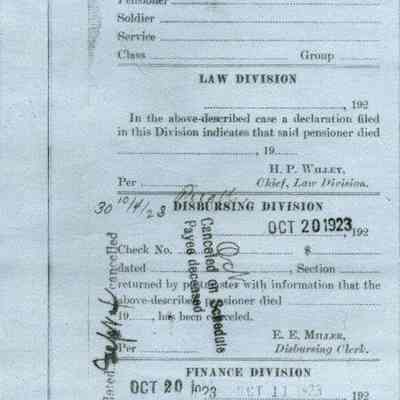 Pensioner
Soldier
Service
Class Group
LAW DIVISION
, 192
In the above-described case a declaration filed
in this Division indicates that said pensioner died
, 19
H. P. WILLEY,
Per Chief, Law Division.
30 10/4/23 DISBURSING DIVISION
OCT 20 1923, 192
Check No. $
dated , Section
returned by postmaster with information that the
above-described pensioner died
19 , has been canceled.
E. E. MILLER,
Per Disbursing Clerk.
Canceled on Schedule
Payee deceased
cancelled
dated
FINANCE DIVISION
OCT 20 1923 OCT 11 1923